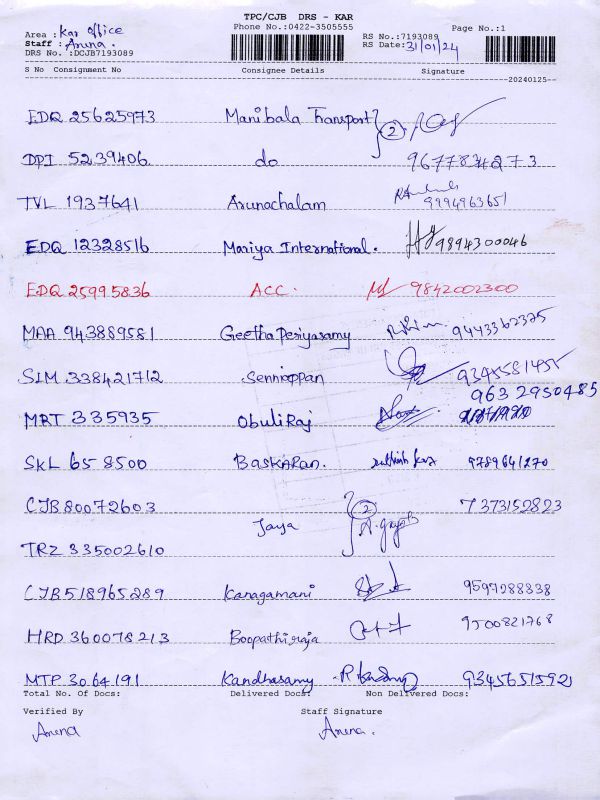 TPC/CJB DRS - KAR
Phone No.:0422-3505555
Page No.:1
Area : Kar office
RS No.:7193089
Staff : Aruna.
RS Date:31/01/24
DRS No. :DCJB7193089
S No Consignment No Consignee Details Signature
20240125--
EDQ 25625973 Manibala Transport 2
DPI 5239406 do 9677834273
TVL 1937641 Arunachalam 9994963651
EDQ 12328516 Mariya International. 9894300046
EDQ 25995836 ACC. 9842002300
MAA 943889581 Geetha Periyasamy 9443362325
SLM 338421712 Sennippan
9632950485
MRT 335935 Obuli Raj
SKL 658500 BASKARAN. 9789641270
CJB 80072603 7373152823
Jaya 2
TRZ 335002610
CJB 518965289 Kanagamani 9597288838
HRD 360078213 Boopathiraja 9500821768
MTP 3064191 Kandhasamy 9345651592
Total No. Of Docs: Delivered Docs: Non Delivered Docs:
Verified By Staff Signature
Aruna Aruna.